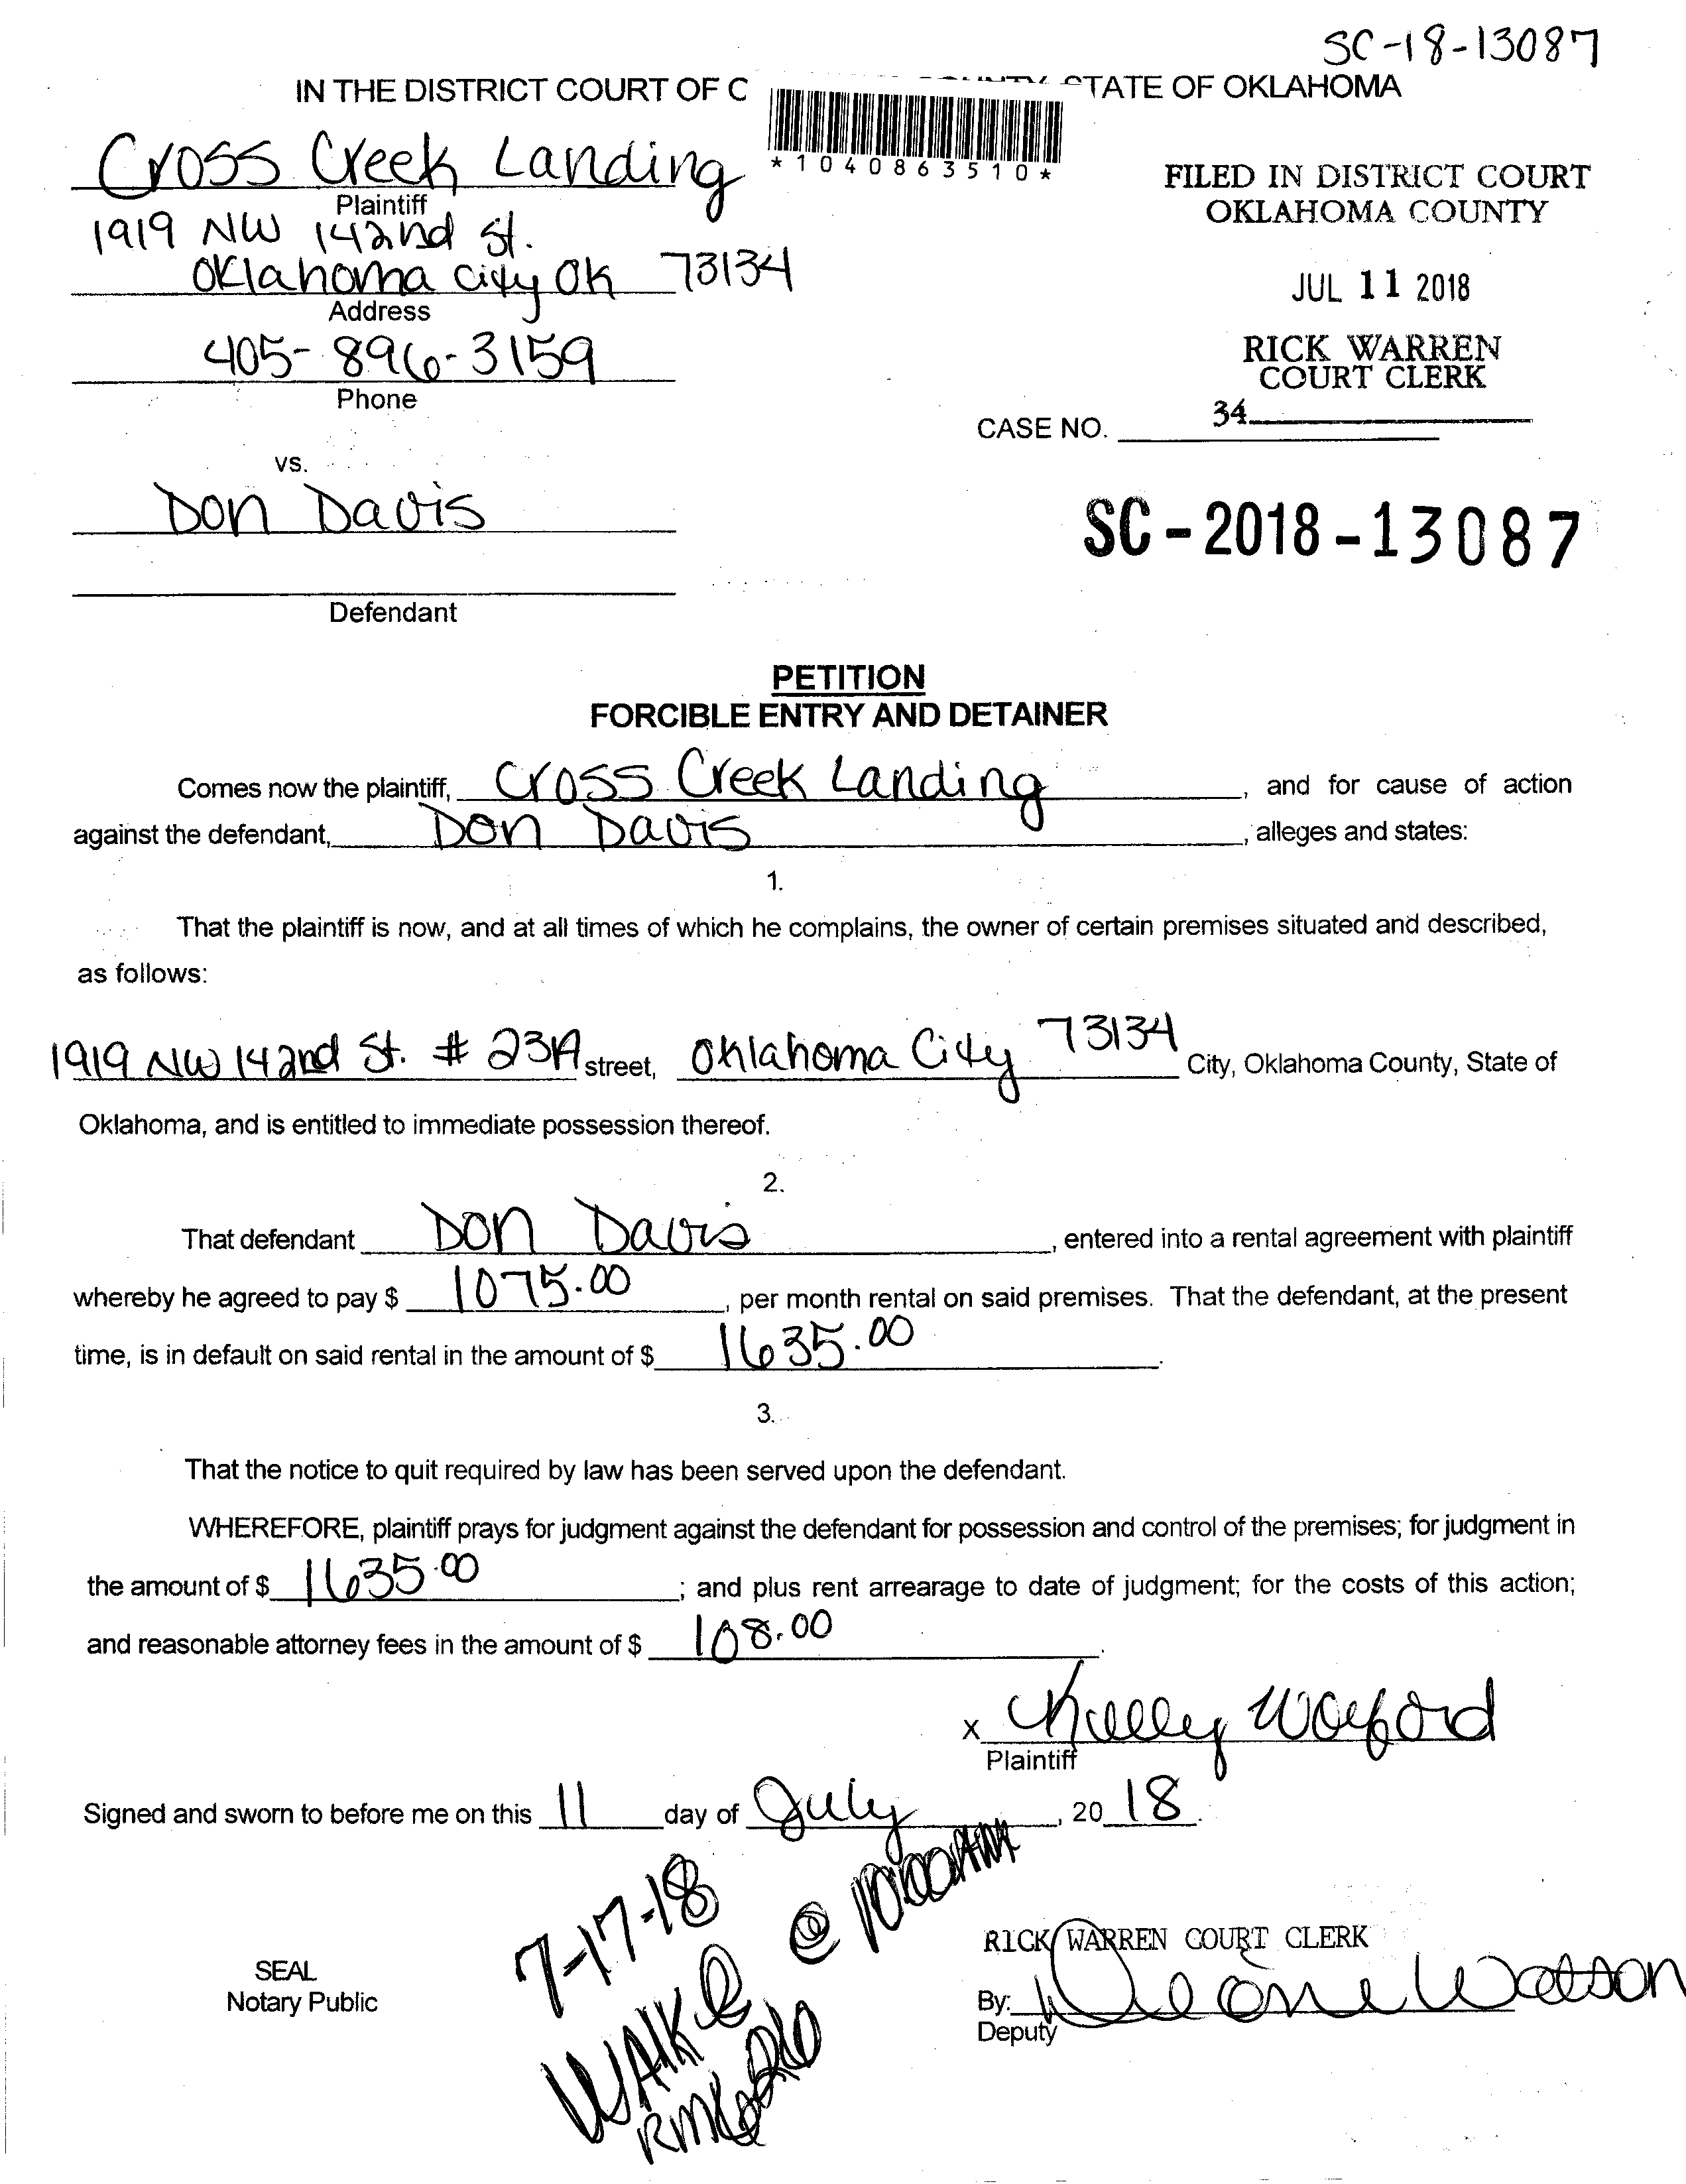 SC-18-13087
IN THE DISTRICT COURT OF C STATE OF OKLAHOMA
*1040863510*
Cross Creek Landing
Plaintiff
1919 NW 142nd St.
Oklahoma City OK 73134
Address
405-896-3159
Phone
FILED IN DISTRICT COURT
OKLAHOMA COUNTY
JUL 11 2018
RICK WARREN
COURT CLERK
34
CASE NO.
vs.
Don Davis
SC-2018-13087
Defendant
PETITION
FORCIBLE ENTRY AND DETAINER
Comes now the plaintiff, Cross Creek Landing, and for cause of action
against the defendant, Don Davis, alleges and states:
1.
That the plaintiff is now, and at all times of which he complains, the owner of certain premises situated and described,
as follows:
1919 NW 142nd St. # 23A street, Oklahoma City 73134 City, Oklahoma County, State of
Oklahoma, and is entitled to immediate possession thereof.
2.
That defendant Don Davis, entered into a rental agreement with plaintiff
whereby he agreed to pay $ 1075.00, per month rental on said premises. That the defendant, at the present
time, is in default on said rental in the amount of $ 1635.00.
3.
That the notice to quit required by law has been served upon the defendant.
WHEREFORE, plaintiff prays for judgment against the defendant for possession and control of the premises; for judgment in
the amount of $ 1635.00; and plus rent arrearage to date of judgment; for the costs of this action;
and reasonable attorney fees in the amount of $ 108.00.
x Kelley Wolford
Plaintiff
Signed and sworn to before me on this 11 day of July, 2018.
7-17-18 @
RICK WARREN COURT CLERK
SEAL
Notary Public
By: Watson
Deputy
WALK